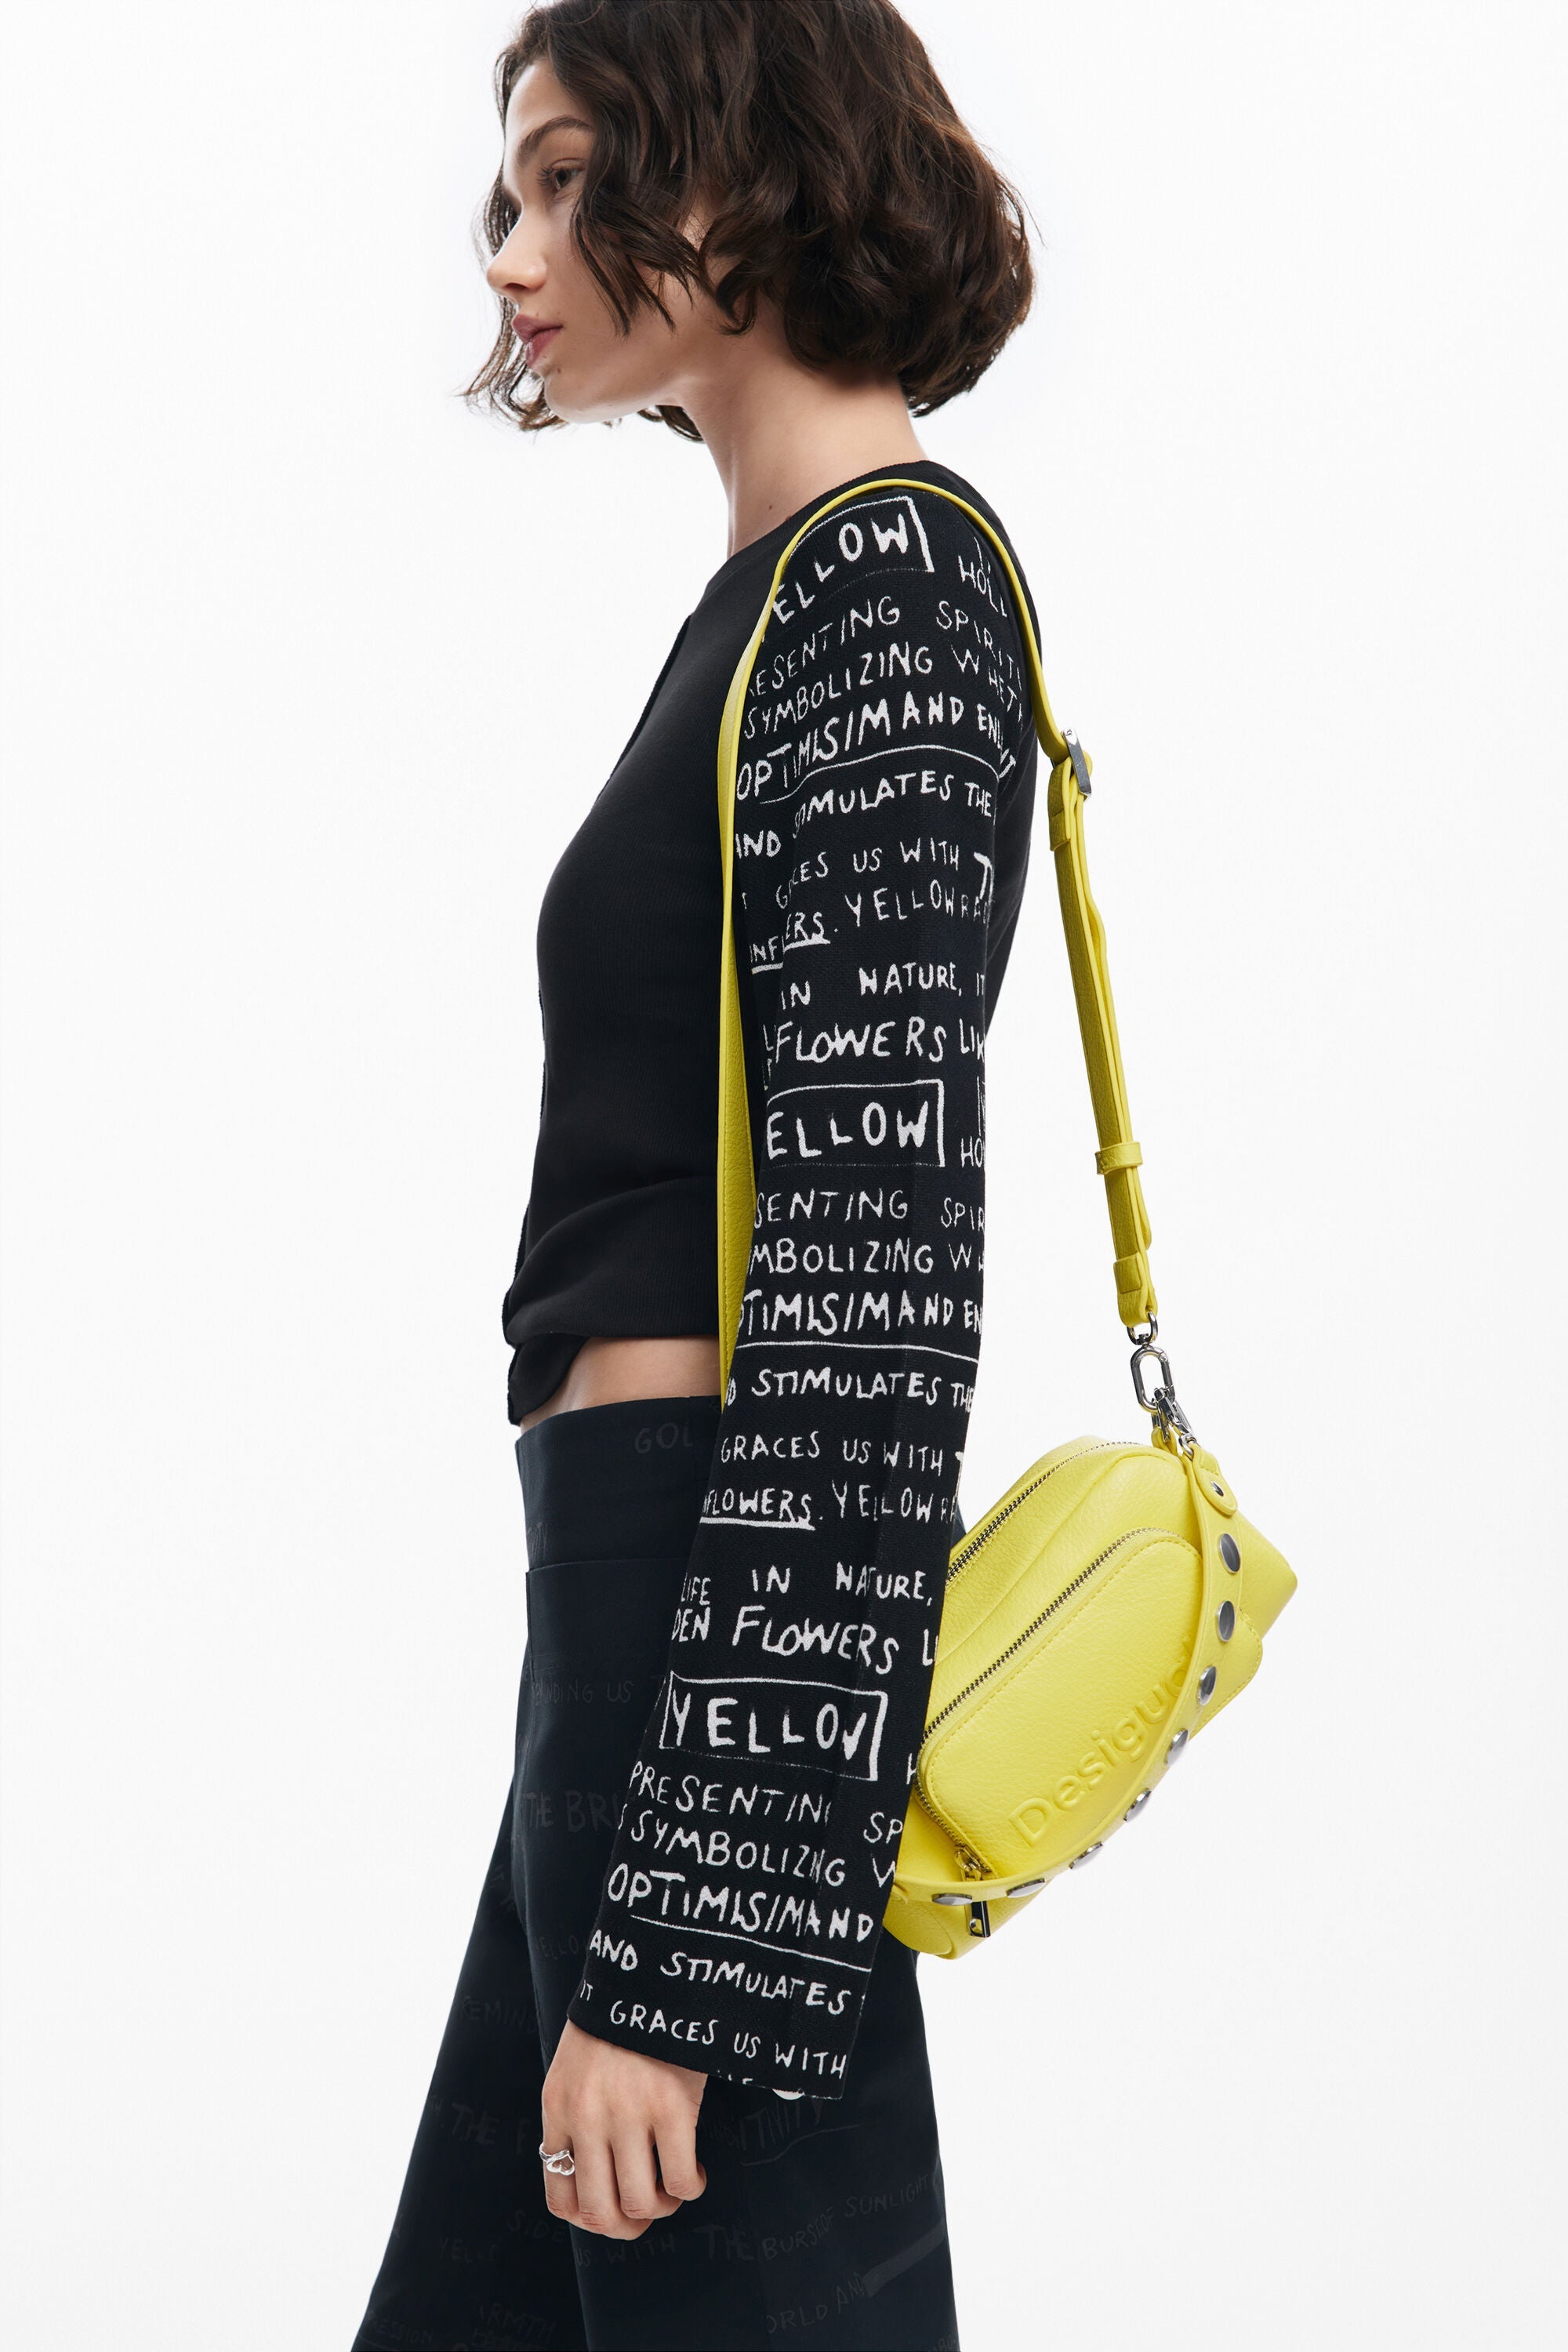 ELLOW
HOLL
ESENTING SPIRIT
SYMBOLIZING WHET
OPTIMISIM AND EN
AND TIMULATES THE
GRACES US WITH T
INFLERS. YELLOW RE
IN NATURE, IT
FLOWERS LIK
ELLOW
HO
SENTING SPIR
MBOLIZING WH
TIMISIM AND EN
D STIMULATES THE
GRACES US WITH T
NFLOWERS. YELLOW RE
LIFE IN NATURE,
DEN FLOWERS LI
YELLOW
PRESENTING SP
SYMBOLIZING W
OPTIMISIM AND
AND STIMULATES
IT GRACES US WITH
Desigual
GOL
NDING US
THE BRI
ELLO
REMIND
THE F
SIDE
YELL
US WITH THE BURST OF SUNLIGHT
ORLD AND
RMTH
RESSION